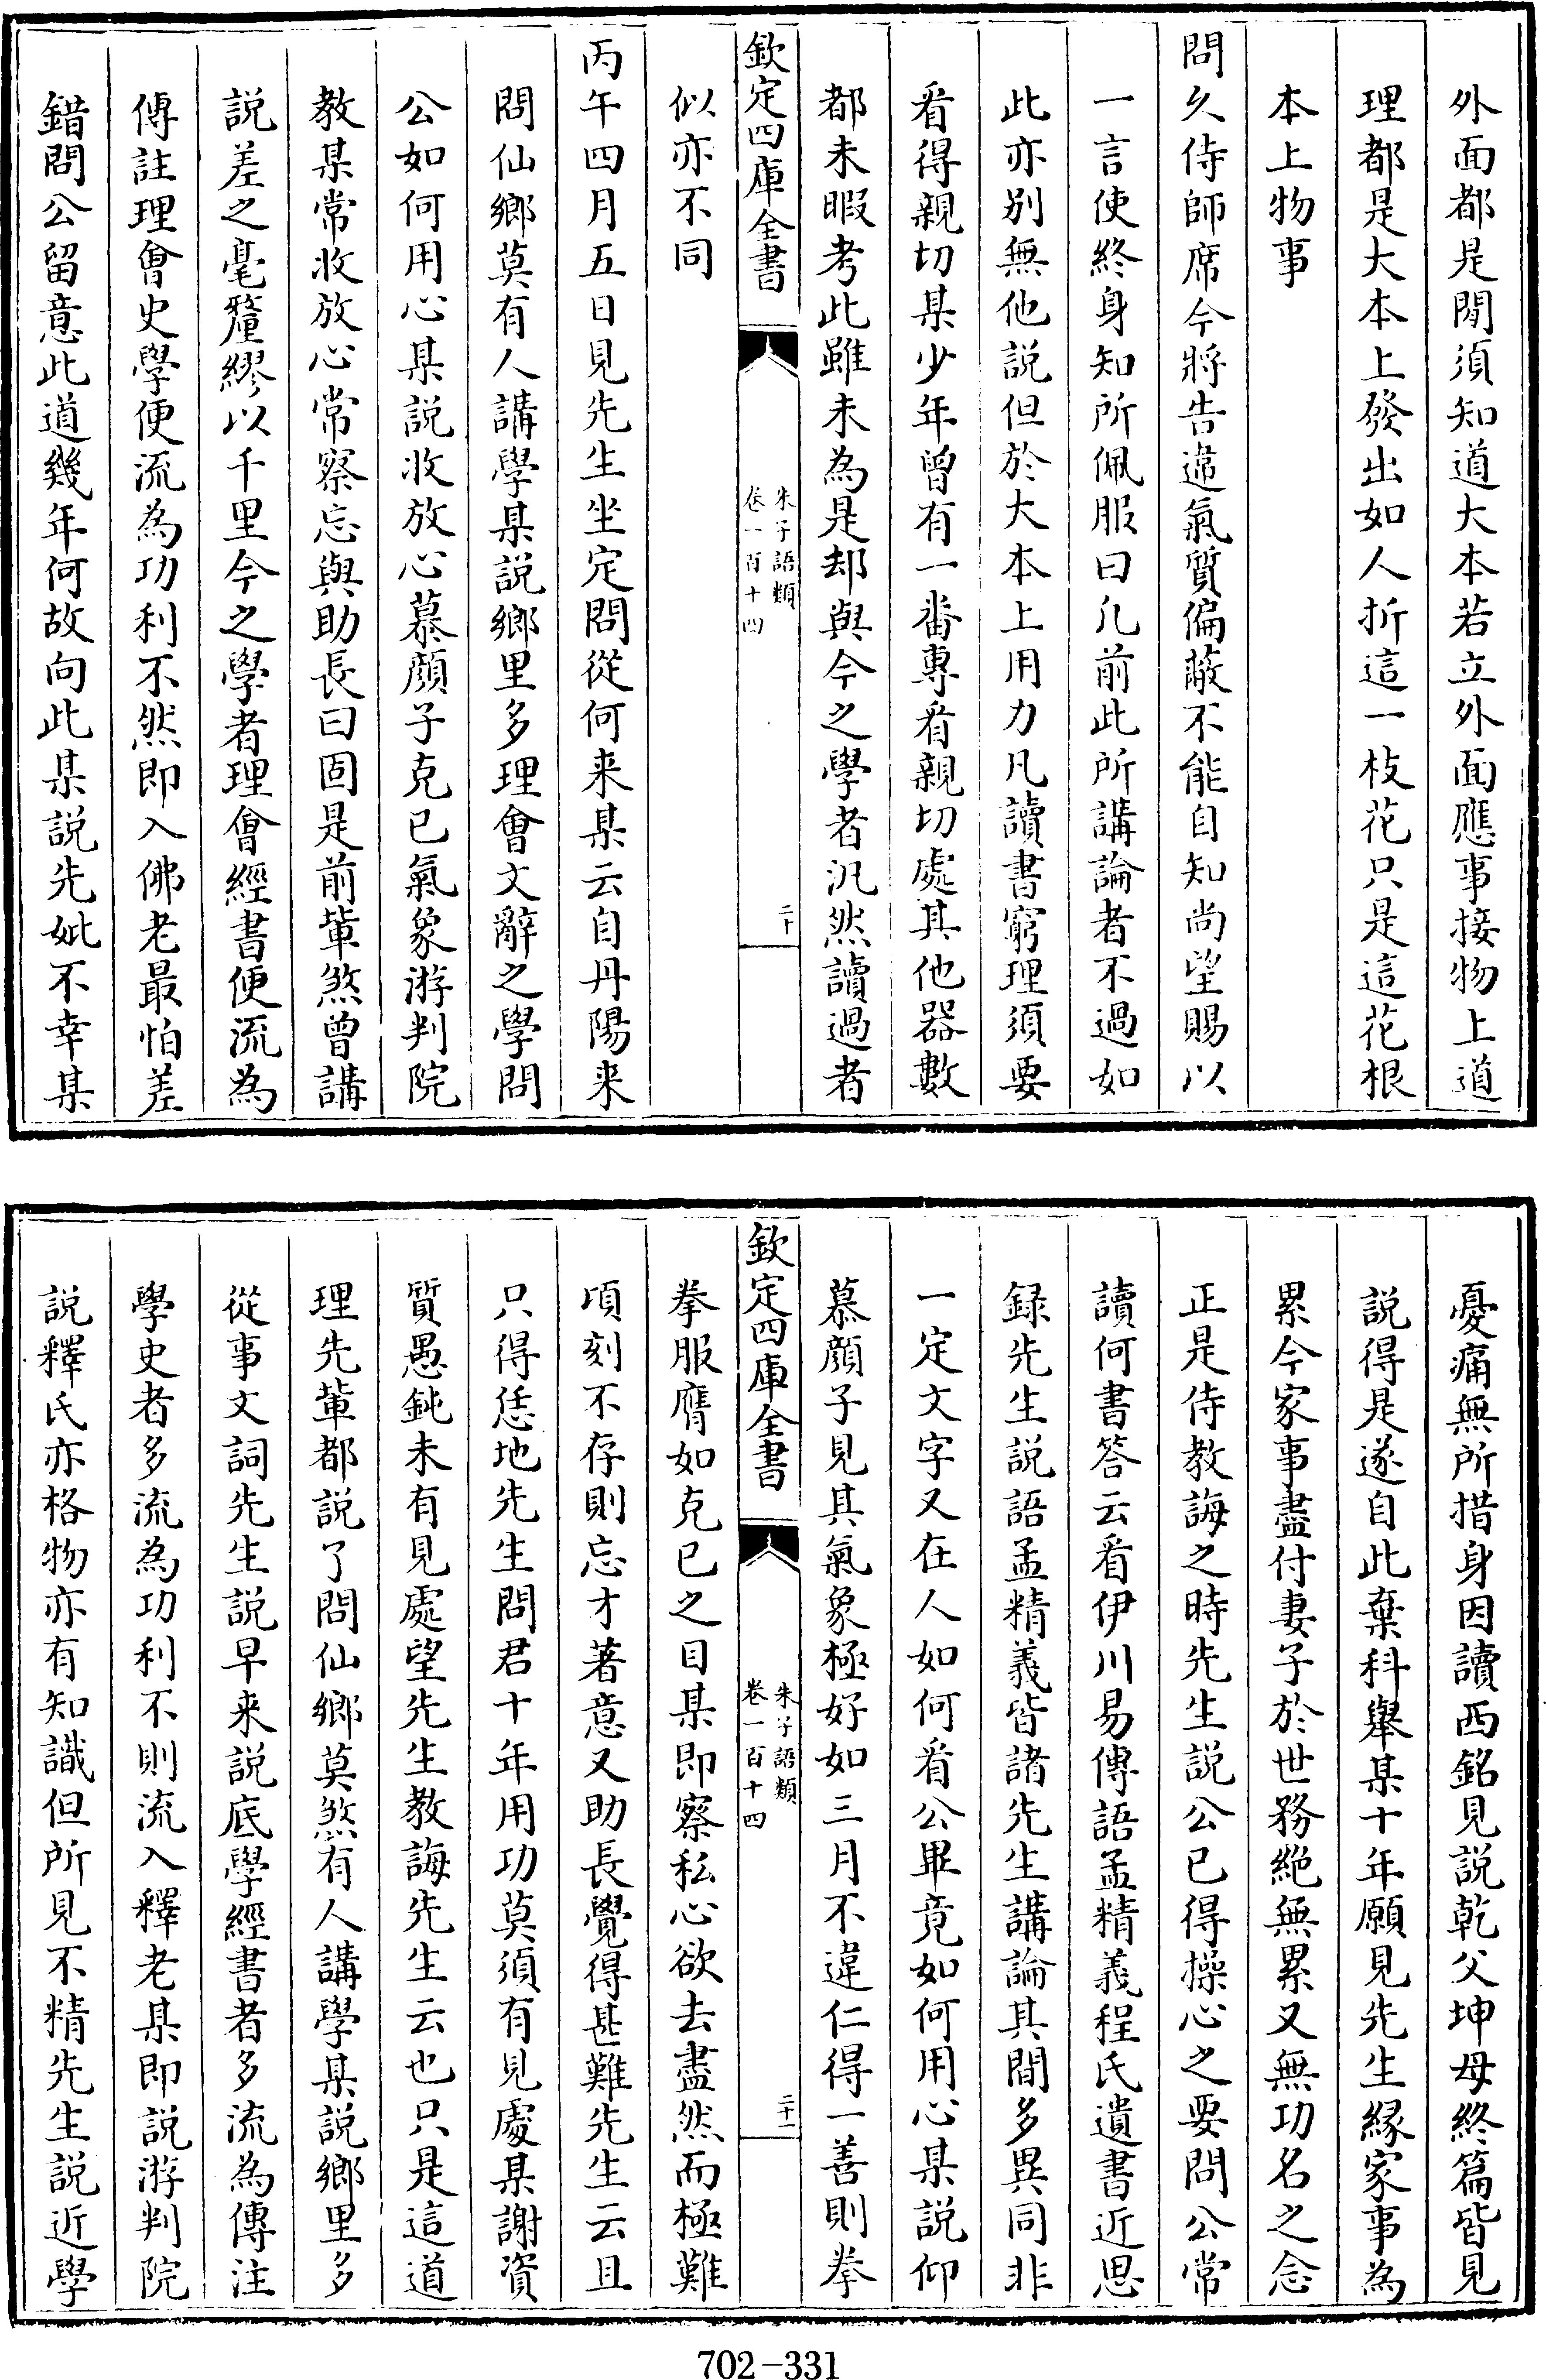 外面都是閒須知道大本若立外面應事接物上道
理都是大本上發出如人折這一枝花只是這花根
本上物事
問久侍師席今將告違氣質偏蔽不能自知尚望賜以
一言使終身知所佩服曰凡前此所講論者不過如
此亦别無他説但於大本上用力凡讀書窮理須要
看得親切某少年曾有一番專看親切處其他器數
都未暇考此雖未為是却與今之學者汎然讀過者
欽定四庫全書
朱子語類
卷一百十四
二十
似亦不同
丙午四月五日見先生坐定問從何来某云自丹陽来
問仙鄉莫有人講學某説鄉里多理會文辭之學問
公如何用心某説收放心慕顔子克己氣象游判院
教某常收放心常察忘與助長曰固是前輩煞曾講
説差之毫釐繆以千里今之學者理會經書便流為
傳註理會史學便流為功利不然即入佛老最怕差
錯問公留意此道幾年何故向此某説先妣不幸某
憂痛無所措身因讀西銘見説乾父坤母終篇皆見
説得是遂自此棄科舉某十年願見先生縁家事為
累今家事盡付妻子於世務絶無累又無功名之念
正是侍教誨之時先生説公已得操心之要問公常
讀何書答云看伊川易傳語孟精義程氏遺書近思
録先生説語孟精義皆諸先生講論其間多異同非
一定文字又在人如何看公畢竟如何用心某説仰
慕顔子見其氣象極好如三月不違仁得一善則拳
欽定四庫全書
朱子語類
卷一百十四
二十一
拳服膺如克己之目某即察私心欲去盡然而極難
頃刻不存則忘才著意又助長覺得甚難先生云且
只得恁地先生問君十年用功莫須有見處某謝資
質愚鈍未有見處望先生教誨先生云也只是這道
理先輩都説了問仙鄉莫煞有人講學某説鄉里多
從事文詞先生説早来説底學經書者多流為傳注
學史者多流為功利不則流入釋老某即説游判院
説釋氏亦格物亦有知識但所見不精先生説近學
702-331